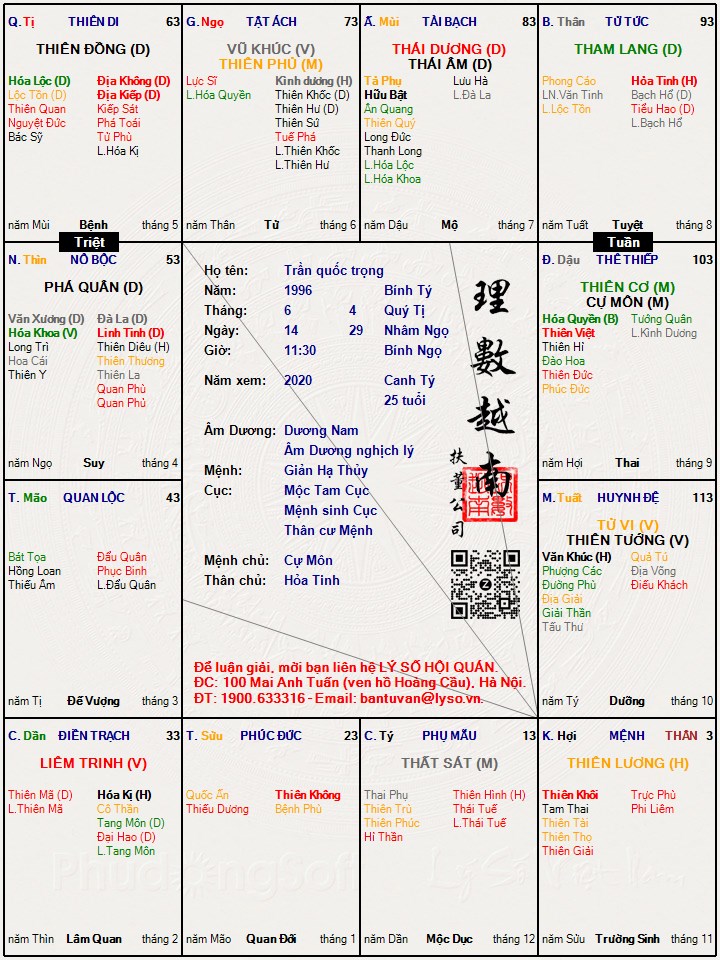 Q. Tị THIÊN DI 63
THIÊN ĐỒNG (D)
Hóa Lộc (D) Địa Không (D)
Lộc Tồn (D) Địa Kiếp (D)
Thiên Quan Kiếp Sát
Nguyệt Đức Phá Toái
Bác Sỹ Tử Phù
L.Hóa Kị
năm Mùi Bệnh tháng 5
G. Ngọ TẬT ÁCH 73
VŨ KHÚC (V)
THIÊN PHỦ (M)
Lực Sĩ Kình dương (H)
L.Hóa Quyền Thiên Khốc (D)
Thiên Hư (D)
Thiên Sứ
Tuế Phá
L.Thiên Khốc
L.Thiên Hư
năm Thân Tử tháng 6
Ấ. Mùi TÀI BẠCH 83
THÁI DƯƠNG (D)
THÁI ÂM (D)
Tả Phụ Lưu Hà
Hữu Bật L.Đà La
Ân Quang
Thiên Quý
Long Đức
Thanh Long
L.Hóa Lộc
L.Hóa Khoa
năm Dậu Mộ tháng 7
B. Thân TỬ TỨC 93
THAM LANG (D)
Phong Cáo Hỏa Tinh (H)
LN.Văn Tinh Bạch Hổ (D)
L.Lộc Tồn Tiểu Hao (D)
L.Bạch Hổ
năm Tuất Tuyệt tháng 8
Triệt
Tuần
N. Thìn NÔ BỘC 53
PHÁ QUÂN (D)
Văn Xương (D) Đà La (D)
Hóa Khoa (V) Linh Tinh (D)
Long Trì Thiên Diêu (H)
Hoa Cái Thiên Thương
Thiên Y Thiên La
Quan Phù
Quan Phủ
năm Ngọ Suy tháng 4
Họ tên: Trần quốc trọng
Năm: 1996 Bính Tý
Tháng: 6 4 Quý Tị
Ngày: 14 29 Nhâm Ngọ
Giờ: 11:30 Bính Ngọ
Năm xem: 2020 Canh Tý
25 tuổi
Âm Dương: Dương Nam
Âm Dương nghịch lý
Mệnh: Giản Hạ Thủy
Cục: Mộc Tam Cục
Mệnh sinh Cục
Thân cư Mệnh
Mệnh chủ: Cự Môn
Thân chủ: Hỏa Tinh
理數越南
扶董公司
Để luận giải, mời bạn liên hệ LÝ SỐ HỘI QUÁN.
ĐC: 100 Mai Anh Tuấn (ven hồ Hoàng Cầu), Hà Nội.
ĐT: 1900.633316 - Email: bantuvan@lyso.vn.
Đ. Dậu THÊ THIẾP 103
THIÊN CƠ (M)
CỰ MÔN (M)
Hóa Quyền (B) Tướng Quân
Thiên Việt L.Kình Dương
Thiên Hỉ
Đào Hoa
Thiên Đức
Phúc Đức
năm Hợi Thai tháng 9
T. Mão QUAN LỘC 43
Bát Tọa Đẩu Quân
Hồng Loan Phục Binh
Thiếu Âm L.Đẩu Quân
năm Tị Đế Vượng tháng 3
M. Tuất HUYNH ĐỆ 113
TỬ VI (V)
THIÊN TƯỚNG (V)
Văn Khúc (H) Quả Tú
Phượng Các Địa Võng
Đường Phù Điếu Khách
Địa Giải
Giải Thần
Tấu Thư
năm Tý Dưỡng tháng 10
C. Dần ĐIỀN TRẠCH 33
LIÊM TRINH (V)
Thiên Mã (D) Hóa Kị (H)
L.Thiên Mã Cô Thần
Tang Môn (D)
Đại Hao (D)
L.Tang Môn
năm Thìn Lâm Quan tháng 2
T. Sửu PHÚC ĐỨC 23
Quốc Ấn Thiên Không
Thiếu Dương Bệnh Phù
năm Mão Quan Đới tháng 1
C. Tý PHỤ MẪU 13
THẤT SÁT (M)
Thai Phụ Thiên Hình (H)
Thiên Trù Thái Tuế
Thiên Phúc L.Thái Tuế
Hỉ Thần
năm Dần Mộc Dục tháng 12
K. Hợi MỆNH THÂN 3
THIÊN LƯƠNG (H)
Thiên Khôi Trực Phù
Tam Thai Phi Liêm
Thiên Tài
Thiên Thọ
Thiên Giải
năm Sửu Trường Sinh tháng 11